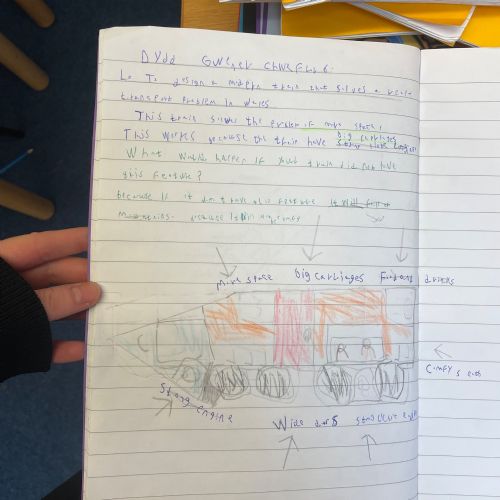 Dydd Gwener Chwefror 6.
Lo To design a modern train that solves a real
transport problem in Wales
This train solves the problem of more space,
big carriages
This works because the train have
What would happen if your train did not have
this feature?
because if it don't have this feature it will
mountains. because it
More space big carriages Food and drinks
comfy seats
Strong engine
Wide doors